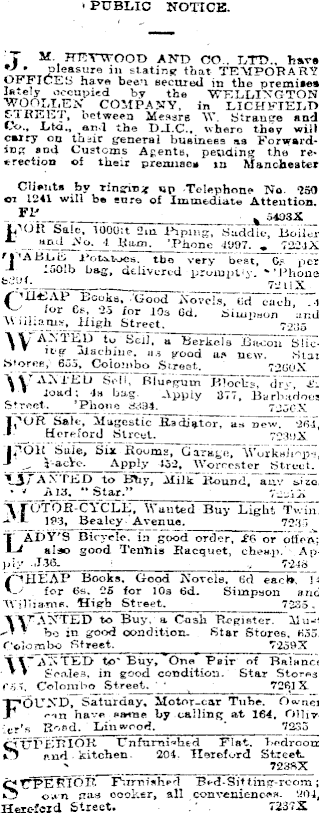 PUBLIC NOTICE.
J. M. HEYWOOD AND CO., LTD., have
pleasure in stating that TEMPORARY
OFFICES have been secured in the premises
lately occupied by the WELLINGTON
WOOLLEN COMPANY, in LICHFIELD
STREET, between Messrs W. Strange and
Co., Ltd., and the D.I.C., where they will
carry on their general business as Forward-
ing and Customs Agents, pending the re-
erection of their premises in Manchester
Clients by ringing up Telephone No. 250
or 1241 will be sure of Immediate Attention.
5493X
FOR Sale, 1000ft 2in Piping, Saddle, Boiler
and No. 4 Ram. 'Phone 4997. 7224X
TABLE Potatoes, the very best, 6s per
150lb bag, delivered promptly. 'Phone
7241X
CHEAP Books, Good Novels, 6d each, 14
for 6s, 25 for 10s 6d. Simpson and
Williams, High Street. 7235
WANTED to Sell, a Berkels Bacon Slic-
ing Machine, as good as new. Star
Stores, 655, Colombo Street. 7260X
WANTED Sell, Bluegum Blocks, dry,
load; 4s bag. Apply 377, Barbadoes
Street. 'Phone 8394. 7256X
FOR Sale, Magestic Radiator, as new. 264,
Hereford Street. 7239X
FOR Sale, Six Rooms, Garage, Workshops,
¼-acre. Apply 452, Worcester Street.
WANTED to Buy, Milk Round, any size.
A13, "Star."
MOTOR-CYCLE, Wanted Buy Light Twin.
193, Bealey Avenue. 7235
LADY'S Bicycle, in good order, £6 or offer;
also good Tennis Racquet, cheap. Ap-
ply J36. 7248
CHEAP Books, Good Novels, 6d each, 14
for 6s, 25 for 10s 6d. Simpson and
Williams, High Street. 7235
WANTED to Buy, a Cash Register. Must
be in good condition. Star Stores, 655,
Colombo Street. 7259X
WANTED to Buy, One Pair of Balance
Scales, in good condition. Star Stores
655, Colombo Street. 7261X
FOUND, Saturday, Motor-car Tube. Owner
can have same by calling at 164, Olliv-
ier's Road, Linwood. 7255
SUPERIOR Unfurnished Flat, bedroom
and kitchen. 204, Hereford Street.
7238X
SUPERIOR Furnished Bed-Sitting-room;
own gas cooker, all conveniences. 204,
Hereford Street. 7237X